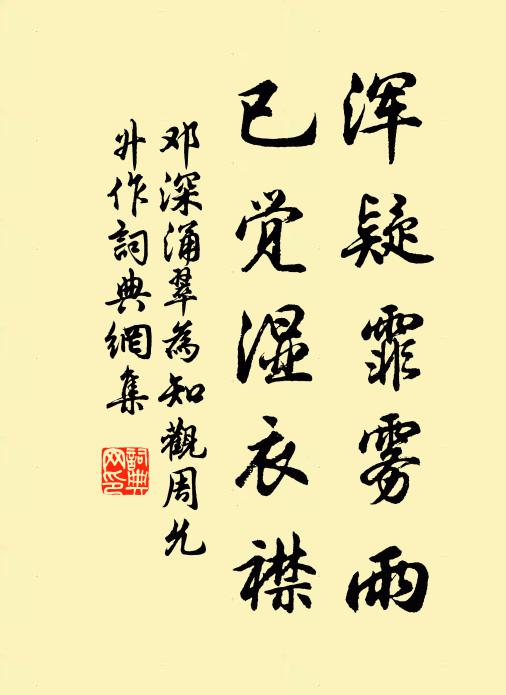 浑疑霏雾雨
已觉湿衣襟
邓深涌翠为知觀周允
升作詞典網集
詞典网印